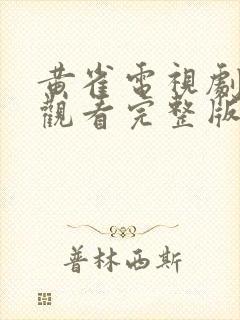 黃雀電視劇
觀看完整版
普林西斯